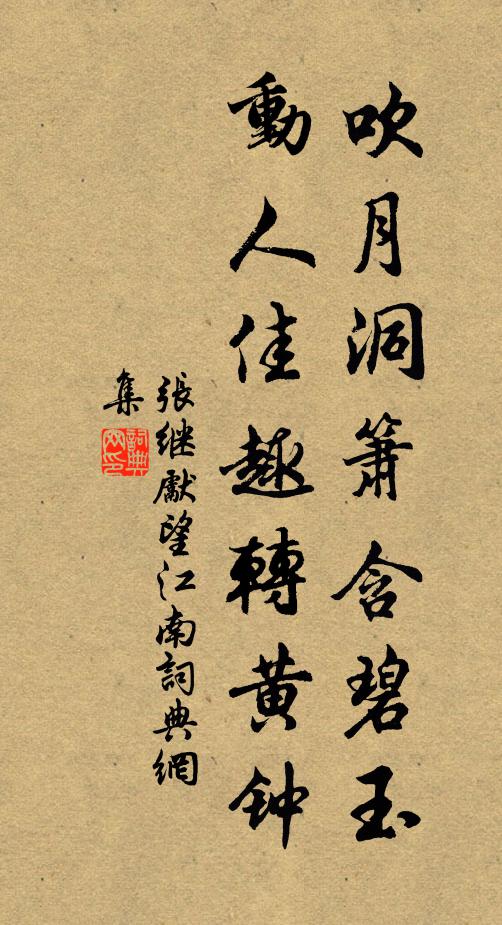 吹月洞簫含碧玉
動人佳趣轉黄钟
張继獻望江南詞典網
集
詞典
网印